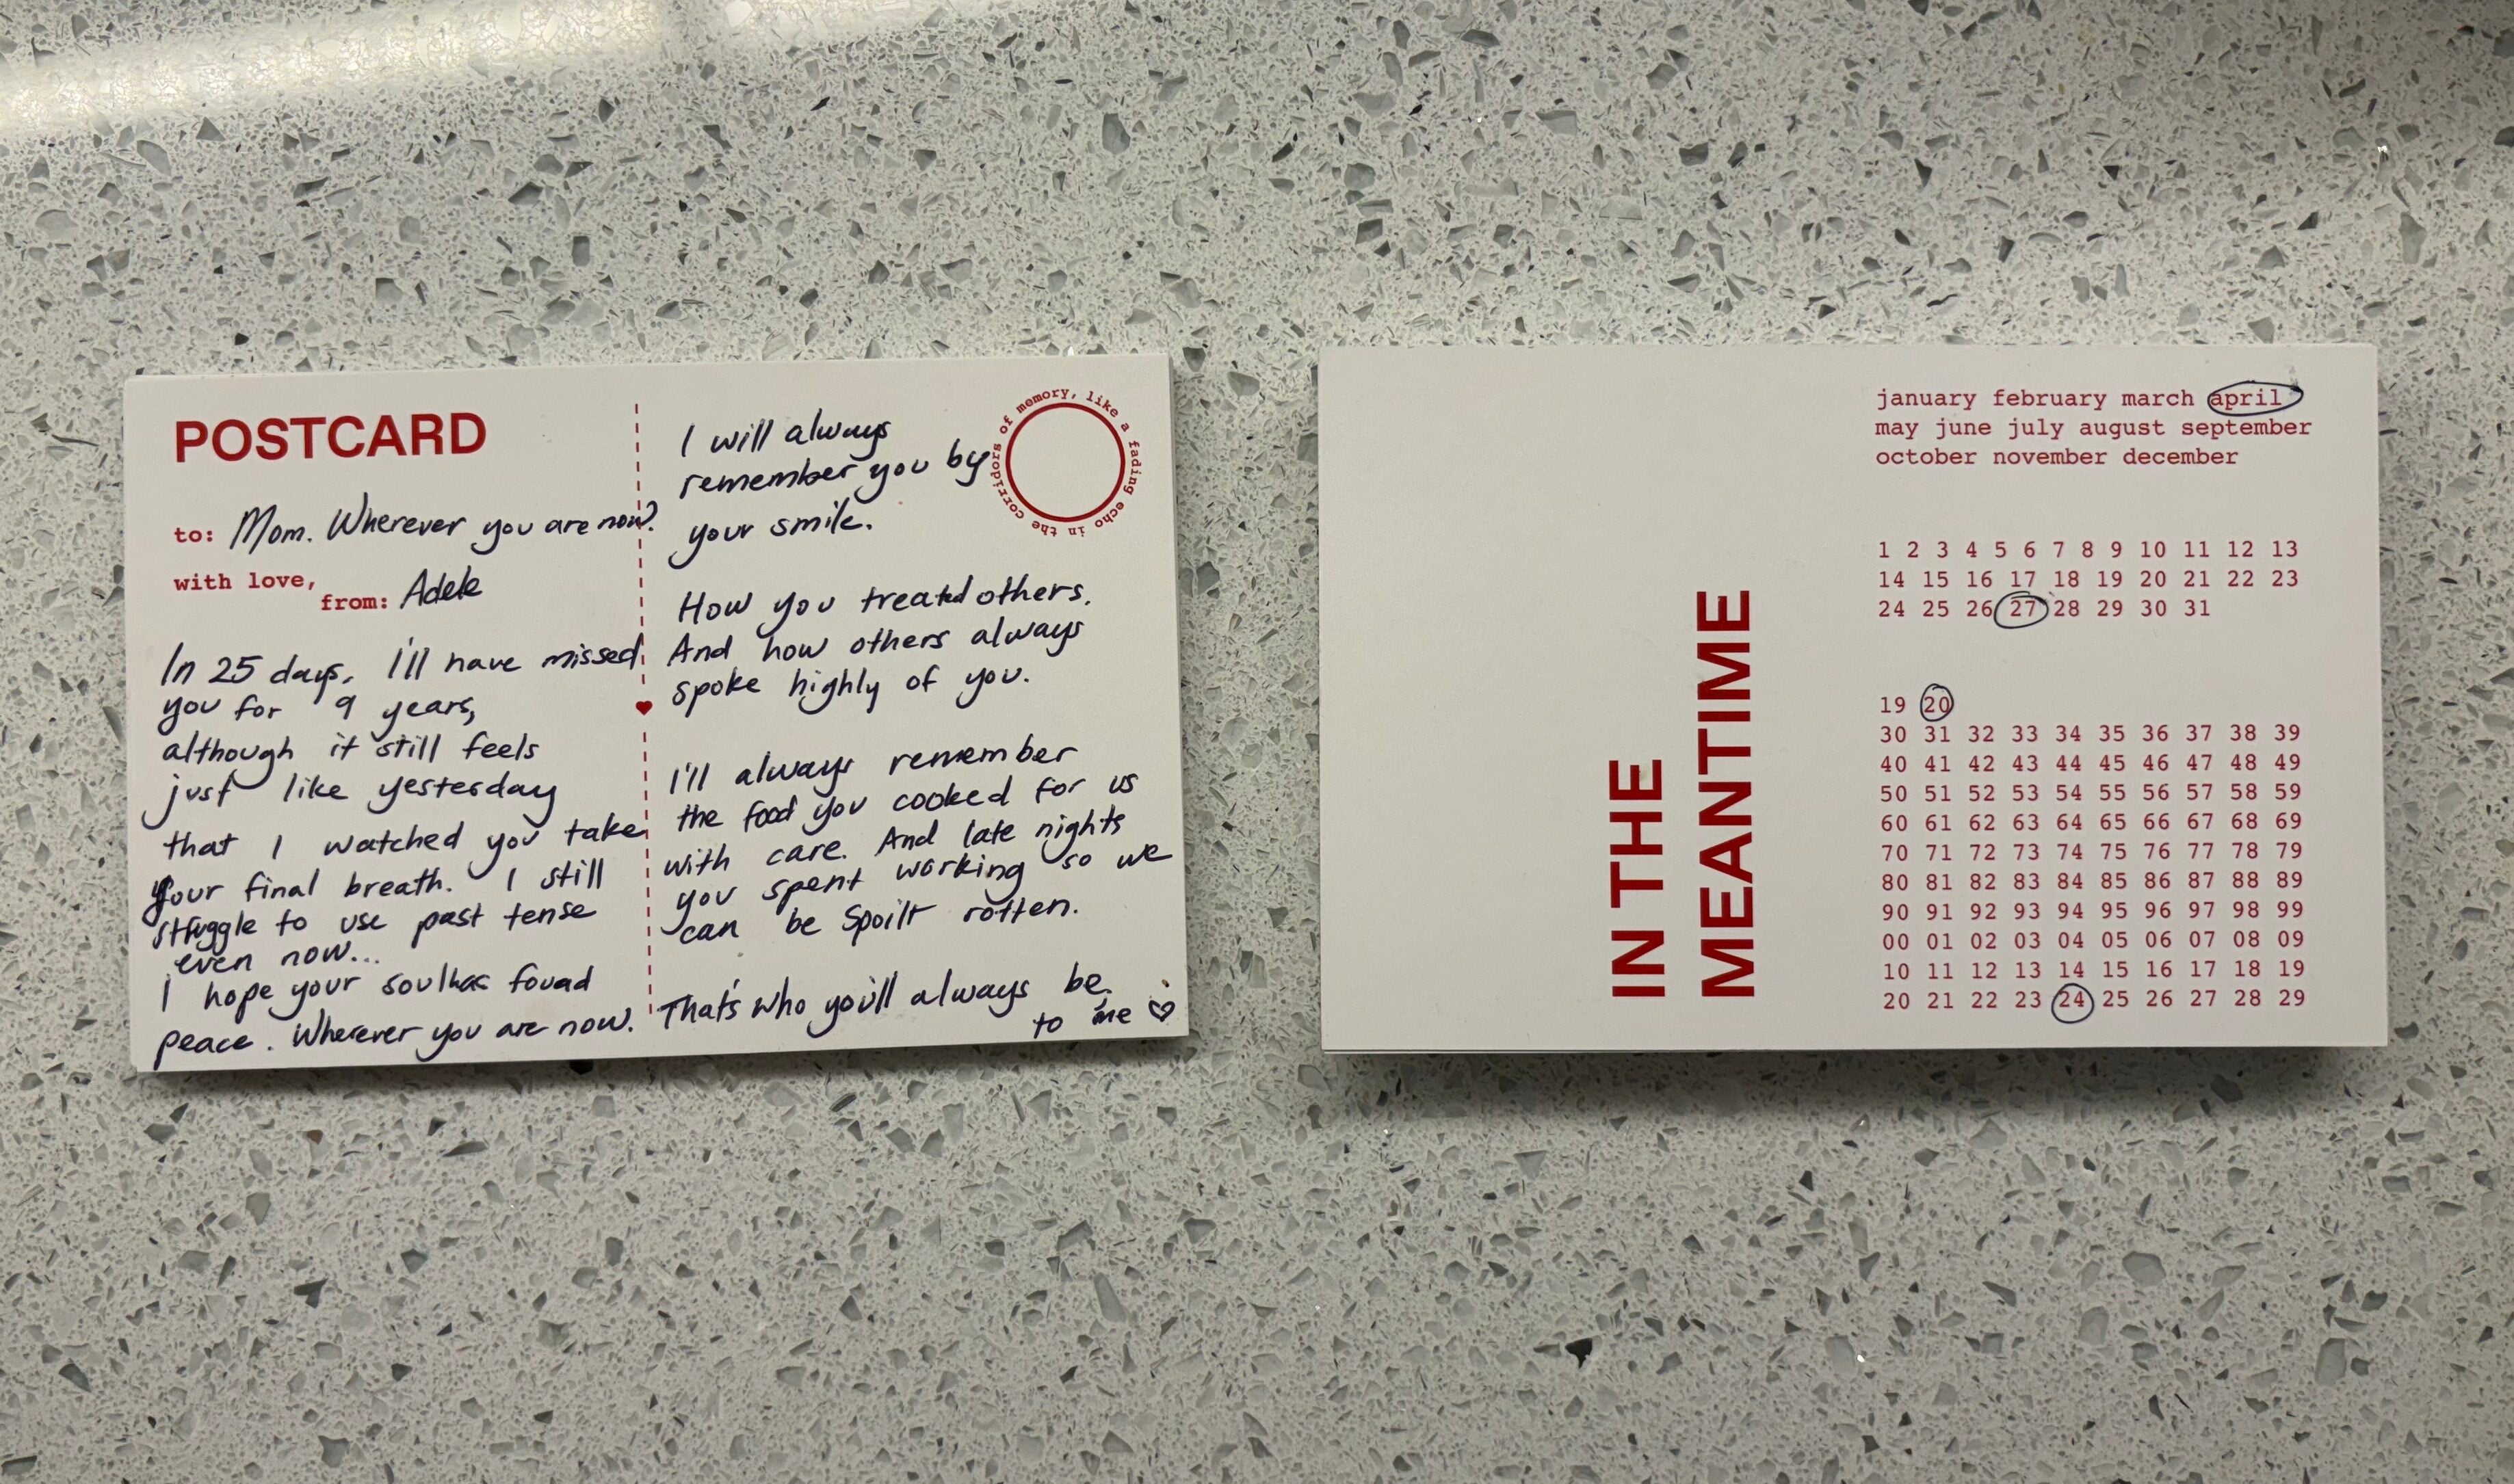 POSTCARD
to: Mom. Wherever you are now?
with love,
from: Adele
In 25 days, I'll have missed
you for 9 years,
although it still feels
just like yesterday
that I watched you take
your final breath. I still
struggle to use past tense
even now...
I hope your soul has found
peace. Wherever you are now.
I will always
remember you by
your smile.
How you treated others.
And how others always
spoke highly of you.
I'll always remember
the food you cooked for us
with care. And late nights
you spent working so we
can be spoilt rotten.
That's who you'll always be
to me
like a fading echo in the corridors of memory,
IN THE
MEANTIME
january february march april
may june july august september
october november december
1 2 3 4 5 6 7 8 9 10 11 12 13
14 15 16 17 18 19 20 21 22 23
24 25 26 27 28 29 30 31
19 20
30 31 32 33 34 35 36 37 38 39
40 41 42 43 44 45 46 47 48 49
50 51 52 53 54 55 56 57 58 59
60 61 62 63 64 65 66 67 68 69
70 71 72 73 74 75 76 77 78 79
80 81 82 83 84 85 86 87 88 89
90 91 92 93 94 95 96 97 98 99
00 01 02 03 04 05 06 07 08 09
10 11 12 13 14 15 16 17 18 19
20 21 22 23 24 25 26 27 28 29